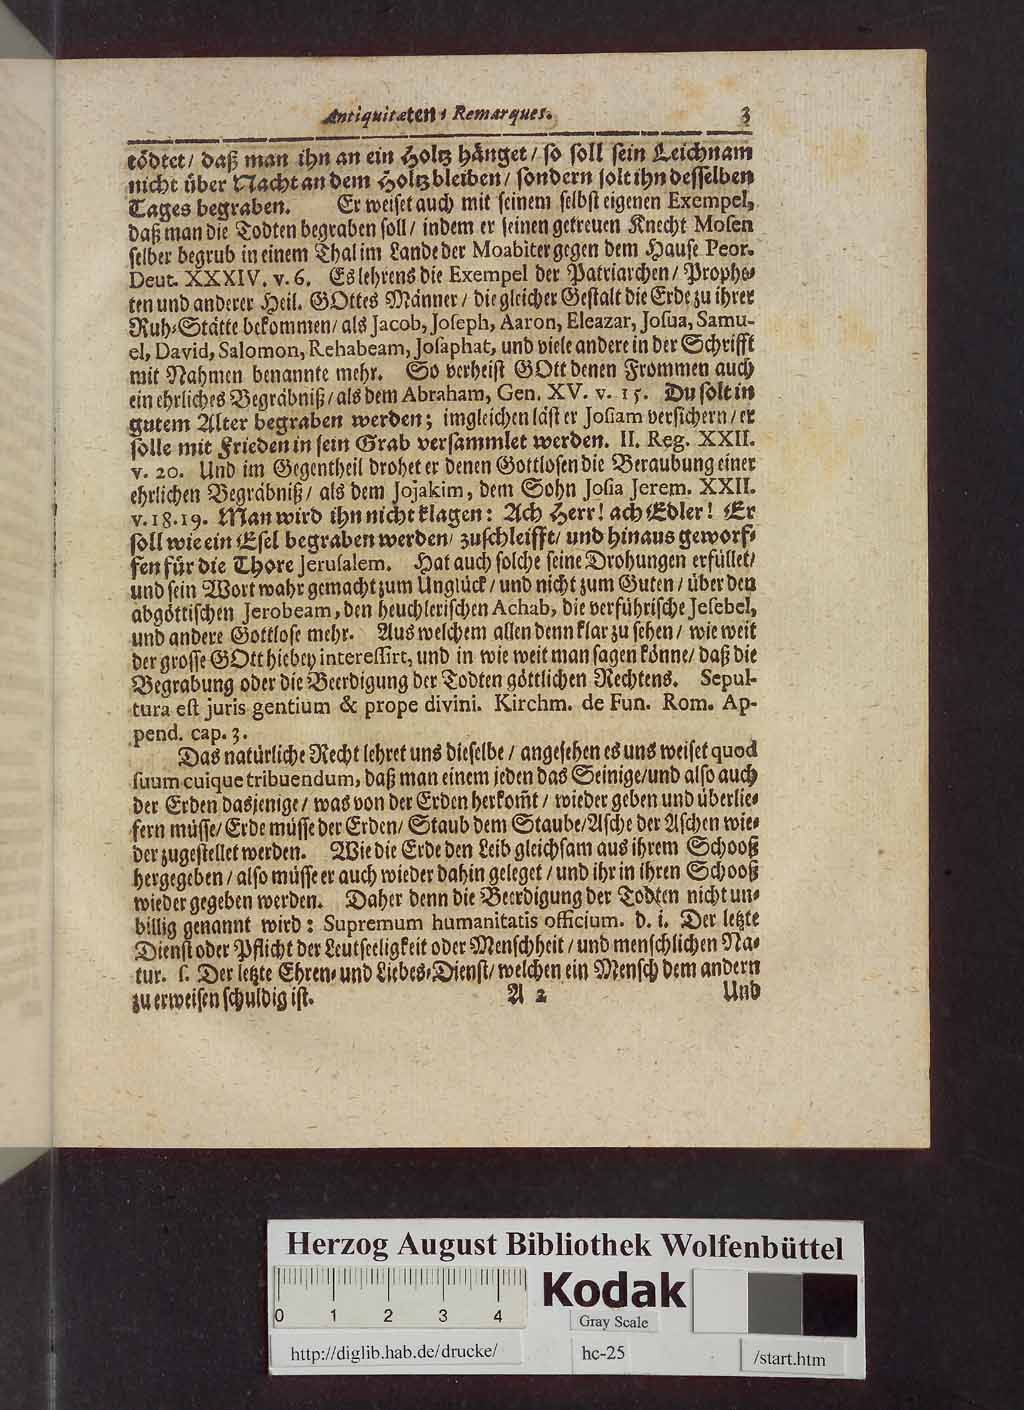 Antiquitæten, Remarques. 3
tödtet/ daß man ihn an ein Holtz hänget/ so soll sein Leichnam
nicht über Nacht an dem Holtz bleiben/ sondern solt ihn desselben
Tages begraben. Er weiset auch mit seinem selbst eigenen Exempel,
daß man die Todten begraben soll/ indem er seinen getreuen Knecht Mosen
selber begrub in einem Thal im Lande der Moabiter gegen dem Hause Peor.
Deut. XXXIV. v. 6. Es lehrens die Exempel der Patriarchen/ Prophe-
ten und anderer Heil. GOttes Männer/ die gleicher Gestalt die Erde zu ihrer
Ruh-Stätte bekommen/ als Jacob, Joseph, Aaron, Eleazar, Josua, Samu-
el, David, Salomon, Rehabeam, Josaphat, und viele andere in der Schrifft
mit Nahmen benannte mehr. So verheist GOtt denen Frommen auch
ein ehrliches Begräbniß/ als dem Abraham, Gen. XV. v. 15. Du solt in
gutem Alter begraben werden; imgleichen läst er Josiam versichern/ er
solle mit Frieden in sein Grab versammlet werden. II. Reg. XXII.
v. 20. Und im Gegentheil drohet er denen Gottlosen die Beraubung einer
ehrlichen Begräbniß/ als dem Jojakim, dem Sohn Josia Jerem. XXII.
v. 18. 19. Man wird ihn nicht klagen: Ach Herr! ach Edler! Er
soll wie ein Esel begraben werden/ zuschleifft/ und hinaus geworf-
fen für die Thore Jerusalem. Hat auch solche seine Drohungen erfüllet/
und sein Wort wahr gemacht zum Unglück/ und nicht zum Guten/ über den
abgöttischen Jerobeam, den heuchlerischen Achab, die verführische Jesebel,
und andere Gottlose mehr. Aus welchem allen denn klar zu sehen/ wie weit
der grosse GOtt hiebey interessirt, und in wie weit man sagen könne/ daß die
Begrabung oder die Beerdigung der Todten göttlichen Rechtens. Sepul-
tura est juris gentium & prope divini. Kirchm. de Fun. Rom. Ap-
pend. cap. 3.
Das natürliche Recht lehret uns dieselbe/ angesehen es uns weiset quod
suum cuique tribuendum, daß man einem jeden das Seinige/ und also auch
der Erden dasjenige/ was von der Erden herkom̃t/ wieder geben und überlie-
fern müsse/ Erde müsse der Erden/ Staub dem Staube/ Asche der Aschen wie-
der zugestellet werden. Wie die Erde den Leib gleichsam aus ihrem Schooß
hergegeben/ also müsse er auch wieder dahin geleget/ und ihr in ihren Schooß
wieder gegeben werden. Daher denn die Beerdigung der Todten nicht un-
billig genannt wird: Supremum humanitatis officium. d. i. Der letzte
Dienst oder Pflicht der Leutseeligkeit oder Menschheit/ und menschlichen Na-
tur. s. Der letzte Ehren- und Liebes-Dienst/ welchen ein Mensch dem andern
zu erweisen schuldig ist. A 2 Und
Herzog August Bibliothek Wolfenbüttel
0 1 2 3 4
Kodak
Gray Scale
http://diglib.hab.de/drucke/ hc-25 /start.htm